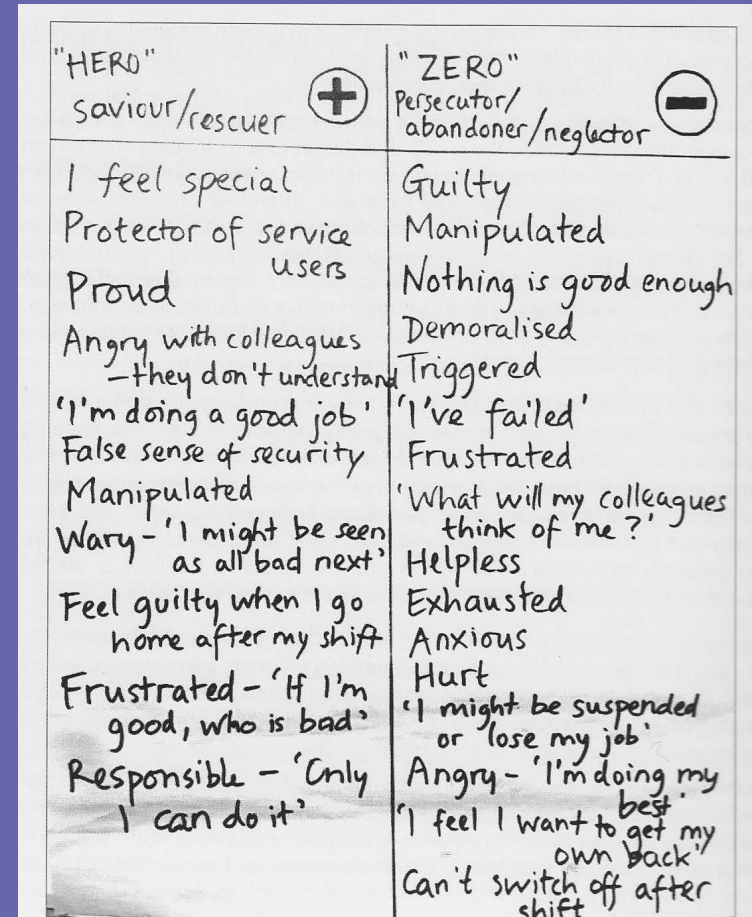 "HERO"
saviour/rescuer
I feel special
Protector of service
users
Proud
Angry with colleagues
- they don't understand
'I'm doing a good job.'
False sense of security
Manipulated
Wary - 'I might be seen
as all bad next'
Feel guilty when I go
home after my shift
Frustrated - 'If I'm
good, who is bad'
Responsible - 'Only
I can do it'
"ZERO"
Persecutor/
abandoner/neglector
Guilty
Manipulated
Nothing is good enough
Demoralised
Triggered
'I've failed'
Frustrated
'What will my colleagues
think of me?'
Helpless
Exhausted
Anxious
Hurt
'I might be suspended
or lose my job'
Angry - 'I'm doing my
best'
'I feel I want to get my
own back'
Can't switch off after
shift